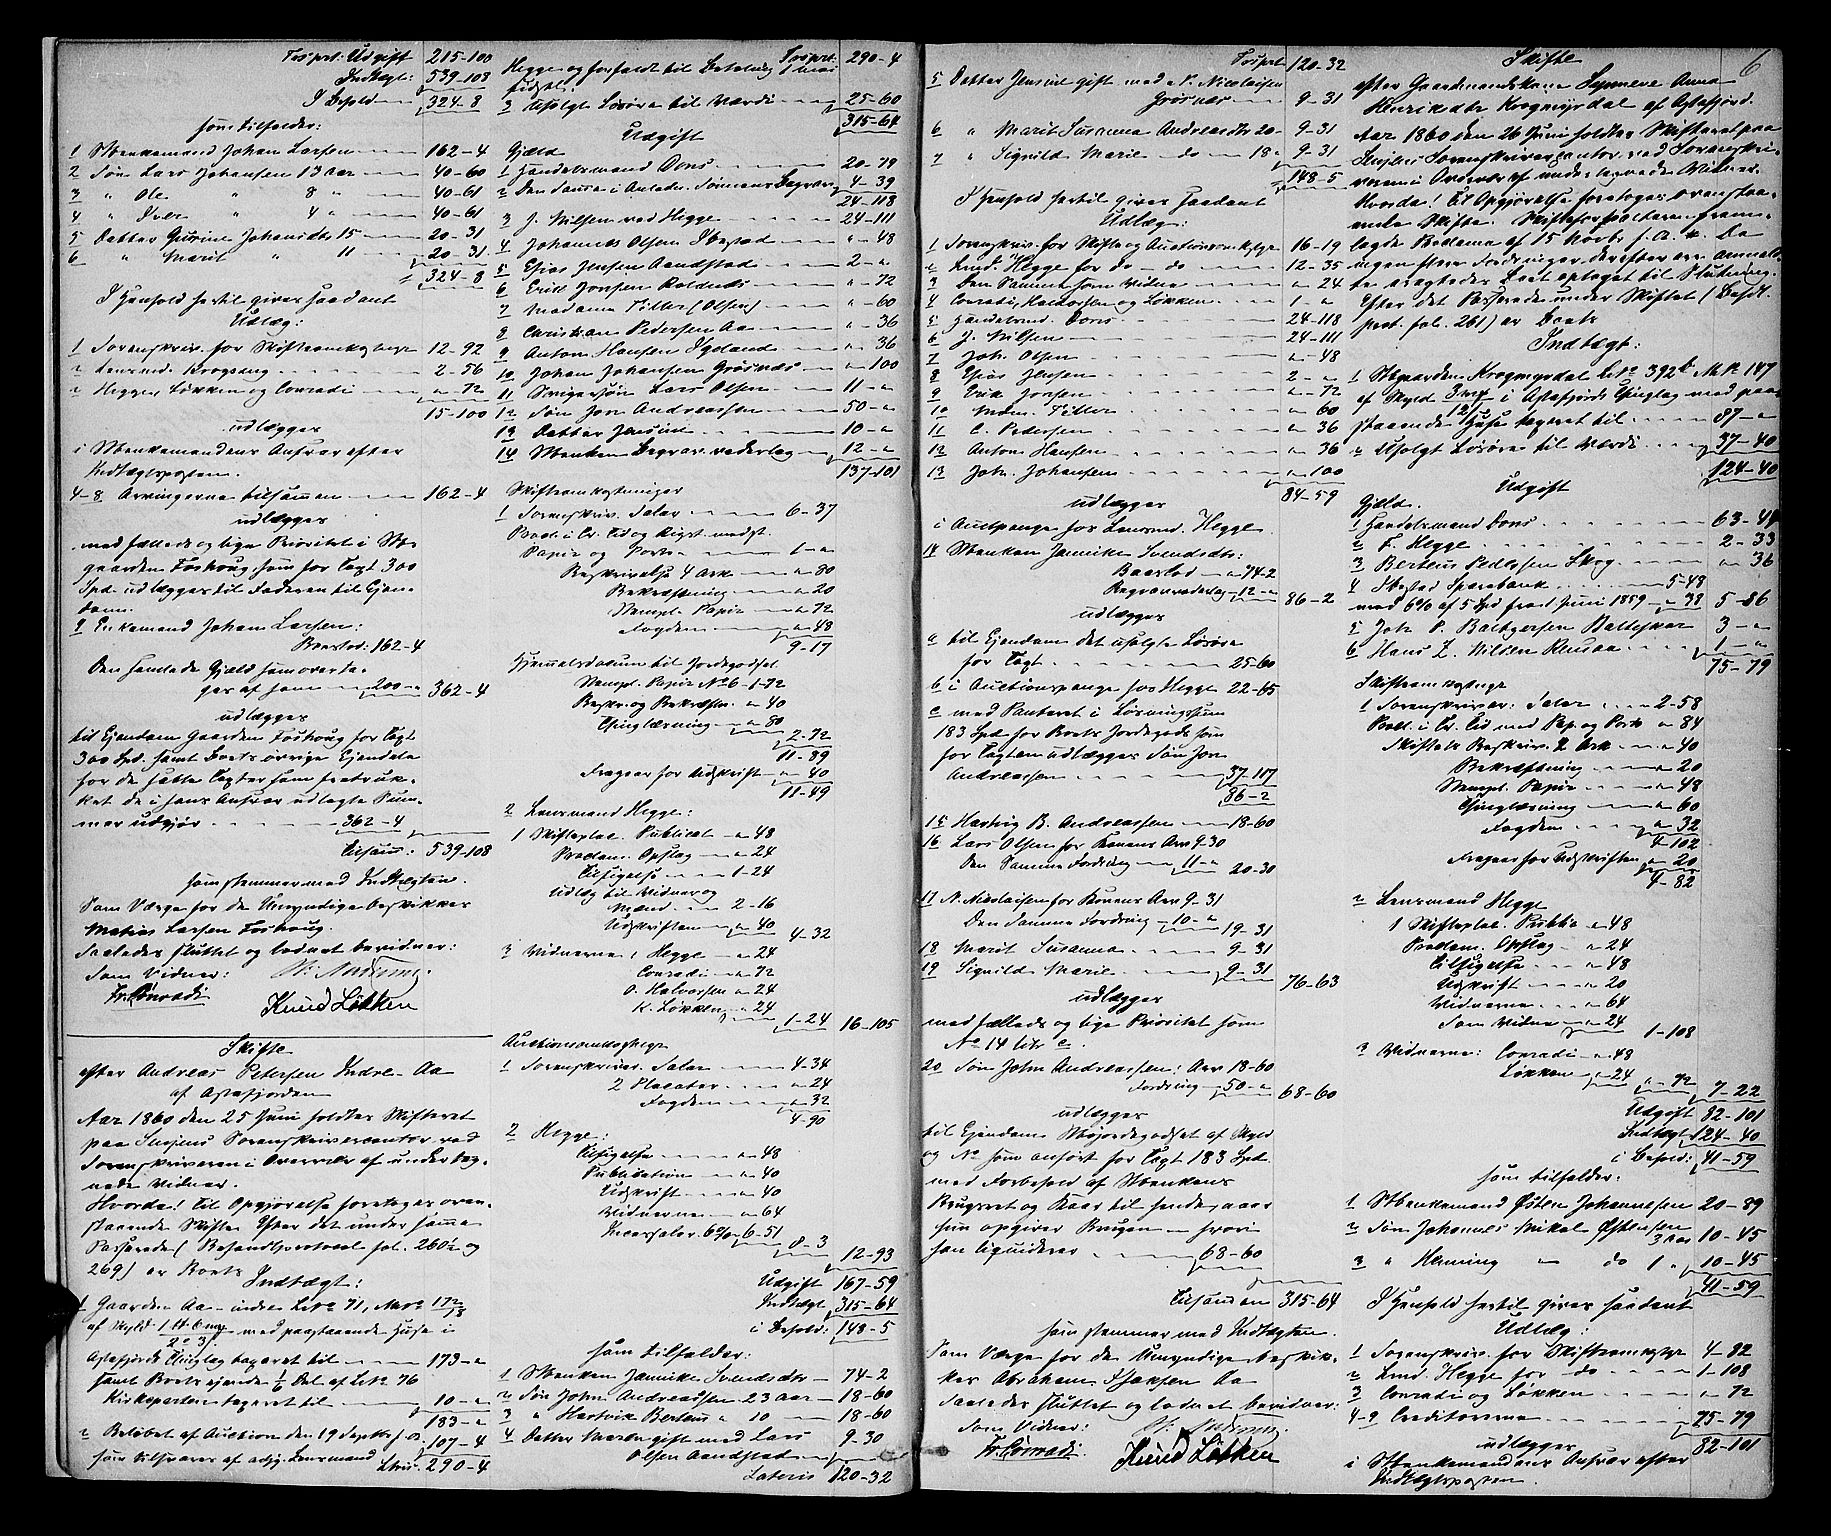 Trsprt: Udgift 215-100
Indtægt: 539-108
I Behold 324-8
som tilfalder:
1 Enkemand Johan Larsen 162-4
2 Søn Lars Johansen 13 aar 40-60
3 " Ole " 8 " 40-61
4 " Iver " 4 " 40-61
5 Datter Gurine Johansdtr 15 20-31
6 " Marit " 11 20-31
324-8
I Henhold hertil gives saadant
Udlæg:
1 Sorenskriv. for Skifteomkostn. 12-92
2 Lensmd. Krogseng 2-56
3 Hegge, Løkken og Conradi " 72
15-100
udlægges
i Enkemandens Ansvar efter
Indtægtsposten.
4-8 Arvingerne tilsammen 162-4
udlægges
med fælleds og lige Prioritet i
gaarden Foshoug, som for Taxt 300
Spd. udlægges til Faderen til Eien-
dom.
9 Enkemand Johan Larsen:
Boeslod: 162-4
Den samlede Gjæld som overta-
ges af ham 200-" 362-4
udlægges
til Ejendom Gaarden Foshoug for Taxt
300 Spd. samt Boets øvrige Ejendele
for de satte Taxter som fratruk-
ket de i hans Ansvar udlagte Sum-
mer udgjør 362-4
Tilsam: 539-108
som stemmer med Indtægten.
Som Værge for de Umyndige beskikkes
Mathias Larsen Foshoug.
Saaledes sluttet og lodnet bevidner:
Som Vidner:
Fr. Conradi
Knud Løkken
Skifte
efter Andreas Petersen Indre-Aa
af Astafjorden
Aar 1860 den 25 Juni holdtes Skifteret
paa Senjens Sorenskrivercontor ved
Sorenskriveren i Overvær af underteg-
nede Vidner.
Hvorda! Til Opgjørelse foretoges oven-
staaende Skifte. Efter det under samme
Passerede (Behandl.protocol fol. 260½ og
269) er Boets
Indtægt:
1 Gaarden Aa-indre Lt.№ 71, M.№ 172/73
af Skyld med paastaaende Huse i
Astafjords Thinglag tageret til 173-"
samt Boets eiende 1/6 Del af Lt.№ 76
Kirkeparten tageret til 10-"
183-"
2 Beløbet af Auction den 19 Septbr f.A. 107-4
som tilsvares af adj. Lensmand
Ltris: 290-4
Trsprt: 290-4
Hegge og forfaldt til Betaling
tidsst.:
3 Usolgt Løsøre til Værdi 25-60
315-64
Udgift
Gjæld
1 Handelsmand Dons 20-79
2 Den Samme i Anledn. Sønnens Begrav. 4-39
24-118
3 J. Nilsen ved Hegge 24-111
4 Johannes Olsen Ibestad " 48
5 Esias Jensen Aandstad 2-"
6 Erik Jonsen " 72
7 Madame Tiller (Olsen) " 60
8 Christian Pedersen Aa " 36
9 Anton Hansen " 36
10 Johan Johansen Grøsnæs " 100
11 Svigersøn Lars Olsen 11-"
12 Søn Jon Andreassen 50-"
13 Datter Jensine 10-"
14 Enken Begrav. vederlag 12-"
137-101
Skifteomkostninger
1 Sorenskriv. Salær 6-37
Papir og Porto 1-"
Beskrivelse 4 Ark " 80
Bekræftning " 20
Stempl. Papir " 72
Fogden " 48
9-17
Hjemmelsdocum. til Jordegodset
Stempl. Papir №6 1-72
Beskr. og Bekræftn. " 40
Thinglæsning " 80
2-72
11-89
Fragaar for Udskrift " 40
11-49
2 Lensmand Hegge:
1 Skifteplac. Publicat. " 48
Proclam. Opslag " 24
Tilsigelse 1-24
Udlæg til Vidner og
Mænd 2-16
Udskriften " 40
4-32
3 Vidnerne: Hegge " 24
Conradi " 72
O. Halvorsen " 24
K. Løkken " 24
1-24 16-105
Auctionsomkostn.
1 Sorenskriver Salær 4-34
2 Placater " 24
Fogden " 32
4-90
2 Hegge:
Tilsigelse " 48
Publication " 40
Udskrift " 40
Vidnerne " 64
Incassalær 6% 6-51
8-3
12-93
Udgift 167-59
Indtægt 315-64
i Behold: 148-5
som tilfalder:
1 Enken Jannike Svendsdtr 74-2
2 Søn John Andreassen 23 aar 18-60
3 " Hartvik Berteus " 10 18-60
4 Datter Maren gift med Lars 9-30
Olsen Aandstad
Lateris 120-32
Trsprt 120-32
5 Datter Jensine gift med N. Nicolaisen
Grøsnæs 9-31
6 " Marit Susanna Andreasdtr 20 9-31
7 " Signild Marie do 18 " 9-31
148-5
I Henhold hertil gives saadant
Udlæg:
1 Sorenskriv. for Skifte og Auctionsomkstn. 16-19
2 Lmd. Hegge for do do 12-35
3 Den Samme som Vidne " 24
4 Conradi, Halvorsen og Løkken 1-"
5 Handelsmd. Dons 24-118
6 J. Nilsen 24-111
7 Joh. Olsen " 48
8 Esias Jensen 2-"
9 Erik Jonsen " 72
10 Mdm. Tiller " 60
11 C. Pedersen " 36
12 Anton Hansen " 36
13 Joh. Johansen " 100
84-59
udlægges
i Auctpenge hos Lensmd. Hegge.
14 Enken Jannike Svendsdtr:
Boeslod 74-2
Begravvederlag 12-" 86-2
udlægges
a til Ejendom det usolgte Løsøre
for Taxt 25-60
b i Auctionspenge hos Hegge 22-65
c med Panteret i Løsningssum
183 Spd. for Boets Jordegods som
for Taxten udlægges Søn Jon
Andreassen 37-117
86-2
15 Hartvig B. Andreassen 18-60
16 Lars Olsen for Konens Arv 9-30
Den Samme Fordring 11-" 20-30
17 N. Nicolaisen for Konens Arv 9-31
Den Samme Fordring 10-" 19-31
18 Marit Susanna 9-31
19 Signild Marie 9-31
76-63
udlægges
med fælleds og lige Prioritet som
№ 14 litr c.
20 Søn John Andreassen: Arv 18-60
Fordring 50-" 68-60
udlægges
til Ejendom Jordegodset af Skyld
og № som anført for Taxt 183 Spd.
med Forbehold af Enkens
Brugsret og Kaar til hendes
som opgiver Brugen hvori
han liquiderer 68-60
Tilsammen 315-64
som stemmer med Indtægten.
Som Værge for de Umyndige beskik-
kes Abraham Isaksen Aa
Saaledes sluttet og lodnet bevidner:
Som Vidner:
Fr. Conradi
Knud Løkken
Skifte 6
efter Gaardmandskone Synneve Anna
Henriksdtr Krogmyrdal af Astafjord.
Aar 1860 den 26 Juni holdtes Skifteret paa
Senjens Sorenskrivercontor ved Sorenskri-
veren i Overvær af undertegnede Vidner.
Hvorda! Til Opgjørelse foretoges ovenstaa-
ende Skifte. Skifteforvalteren frem-
lagde Beviserne af 15 Novbr f.A. Da
ingen flere Fordringer derefter ere anmeld-
te, agtedes Boet optaget til Slutning.
Efter det Passerede under Skiftet (Behdl.
prot. fol. 261) er Boets
Indtægt:
1 Gaarden Krogmyrdal Lt.№ 392b M.№ 147
af Skyld i Astafjords Thinglag med paa-
staaende Huse tageret til 87-"
2 Usolgt Løsøre til Værdi 37-40
124-40
Udgift
Gjæld.
1 Handelsmand Dons 63-44
2 F. Hegge 2-33
3 Berteus Pedersen Skog " 36
4 Ibestad Sparebank 5-48
med 6% af 5 Spd fra 1 Juni 1859 " 38 5-86
5 Joh. P. Baltzersen Balteskar 3-"
6 Hans Z. Nilsen 1-"
75-79
Skifteomkostninger
1 Sorenskriver: Salær 2-58
Pap. og Porto " 84
Skiftets Beskriv. 2 Ark " 40
Bekræftning " 20
Stempl. Papir " 48
Thinglæsning " 60
Fogden " 32
4-102
Fragaar for Udskriften " 20
4-82
2 Lensmand Hegge
1 Skifteplac. Public. " 48
Proclam. Opslag " 24
Tilsigelse " 48
Udskrift " 20
Vidnerne " 64
Som Vidne " 24
1-108
3 Vidnerne: Conradi " 48
Løkken " 24
" 72 7-22
Udgift 82-101
Indtægt 124-40
i Behold: 41-59
som tilfalder:
1 Enkemand Østen Johannesen 20-89
2 Søn Johannes Mikal Østensen
3 aar 10-45
3 " Henning " do 1 " 10-45
41-59
I Henhold hertil gives saadant
Udlæg:
1 Sorenskriv. for Skifteomkstn. 4-82
2 Lmd. Hegge for do 1-108
3 Conradi og Løkken " 72
4-9 Creditorerne 75-79
82-101
udlægges
i Enkemandens Ansvar efter
Indtægtsposten.